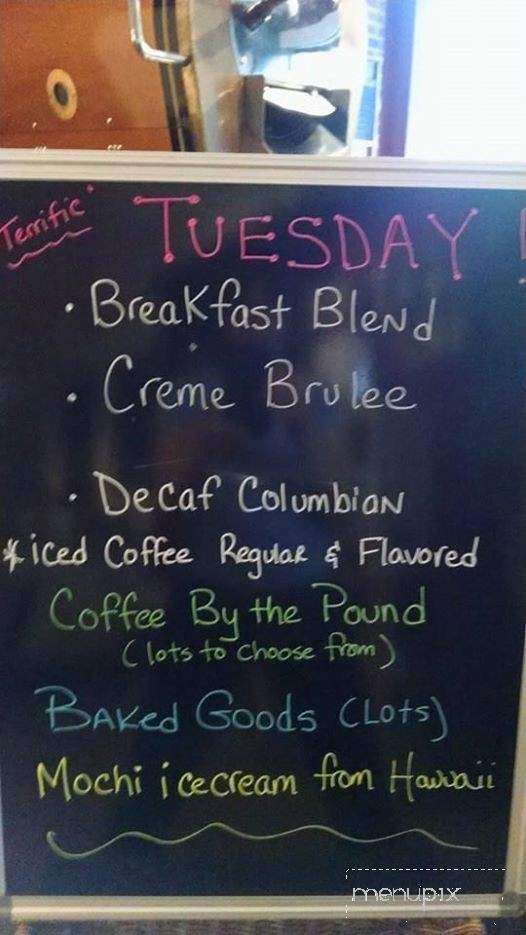 Terrific TUESDAY !
• Breakfast Blend
• Creme Brulee
• Decaf Columbian
* iced Coffee Regular & Flavored
Coffee By the Pound
(lots to choose from)
Baked Goods (Lots)
Mochi icecream from Hawaii
menupix